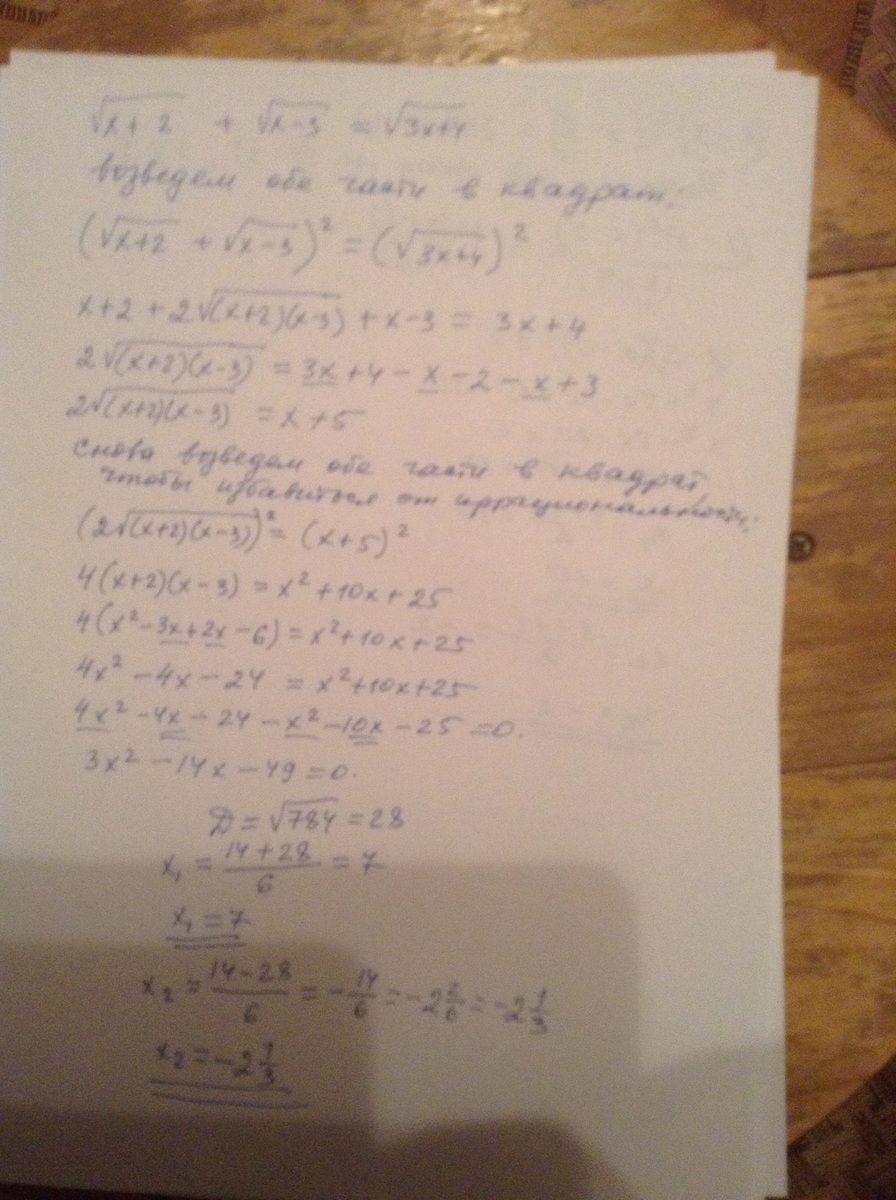 √(x+2) + √(x-3) = √(3x+4)
возведем обе части в квадрат;
(√(x+2) + √(x-3))² = (√(3x+4))²
x+2+2√((x+2)(x-3)) + x-3 = 3x+4
2√((x+2)(x-3)) = 3x+4-x-2-x+3
2√((x+2)(x-3)) = x+5
снова возведем обе части в квадрат,
чтобы избавиться от иррациональности;
(2√((x+2)(x-3)))² = (x+5)²
4(x+2)(x-3) = x²+10x+25
4(x²-3x+2x-6) = x²+10x+25
4x²-4x-24 = x²+10x+25
4x²-4x-24-x²-10x-25=0.
3x²-14x-49=0.
D = √784 = 28
x₁ = (14+28)/6 = 7
x₁ = 7
x₂ = (14-28)/6 = -14/6 = -2 2/6 = -2 1/3
x₂ = -2 1/3